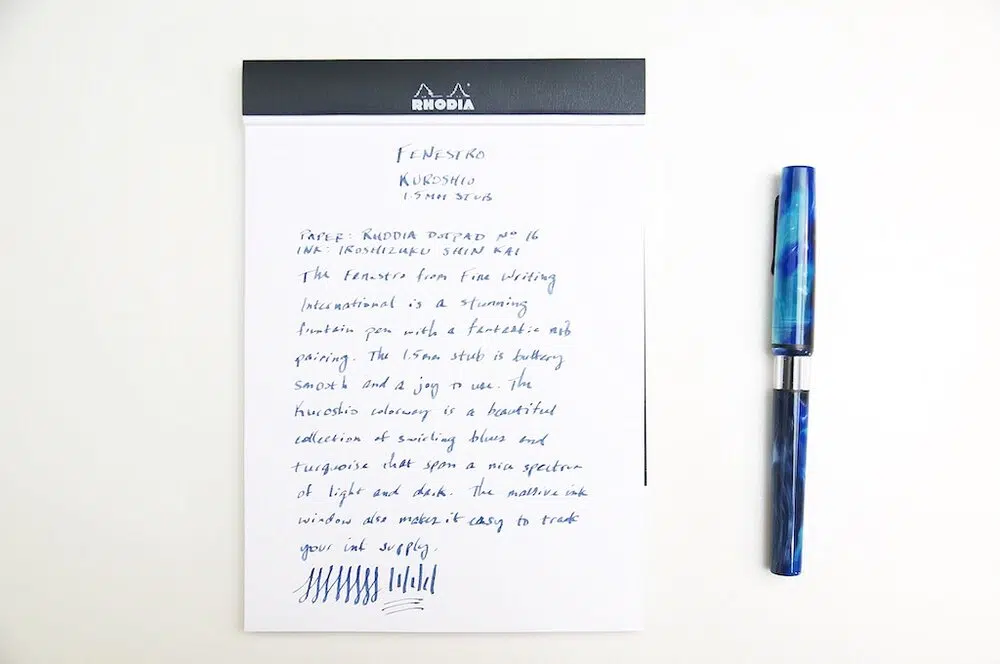 RHODIA
FENESTRO
KUROSHIO
1.5MM STUB
PAPER: RHODIA DOTPAD Nº 16
INK: IROSHIZUKU SHIN KAI
The Fenestro from Fine Writing
International is a stunning
fountain pen with a fantastic nib
pairing. The 1.5mm stub is buttery
smooth and a joy to use. The
Kuroshio colorway is a beautiful
collection of swirling blues and
turquoise that span a nice spectrum
of light and dark. The massive ink
window also makes it easy to track
your ink supply.